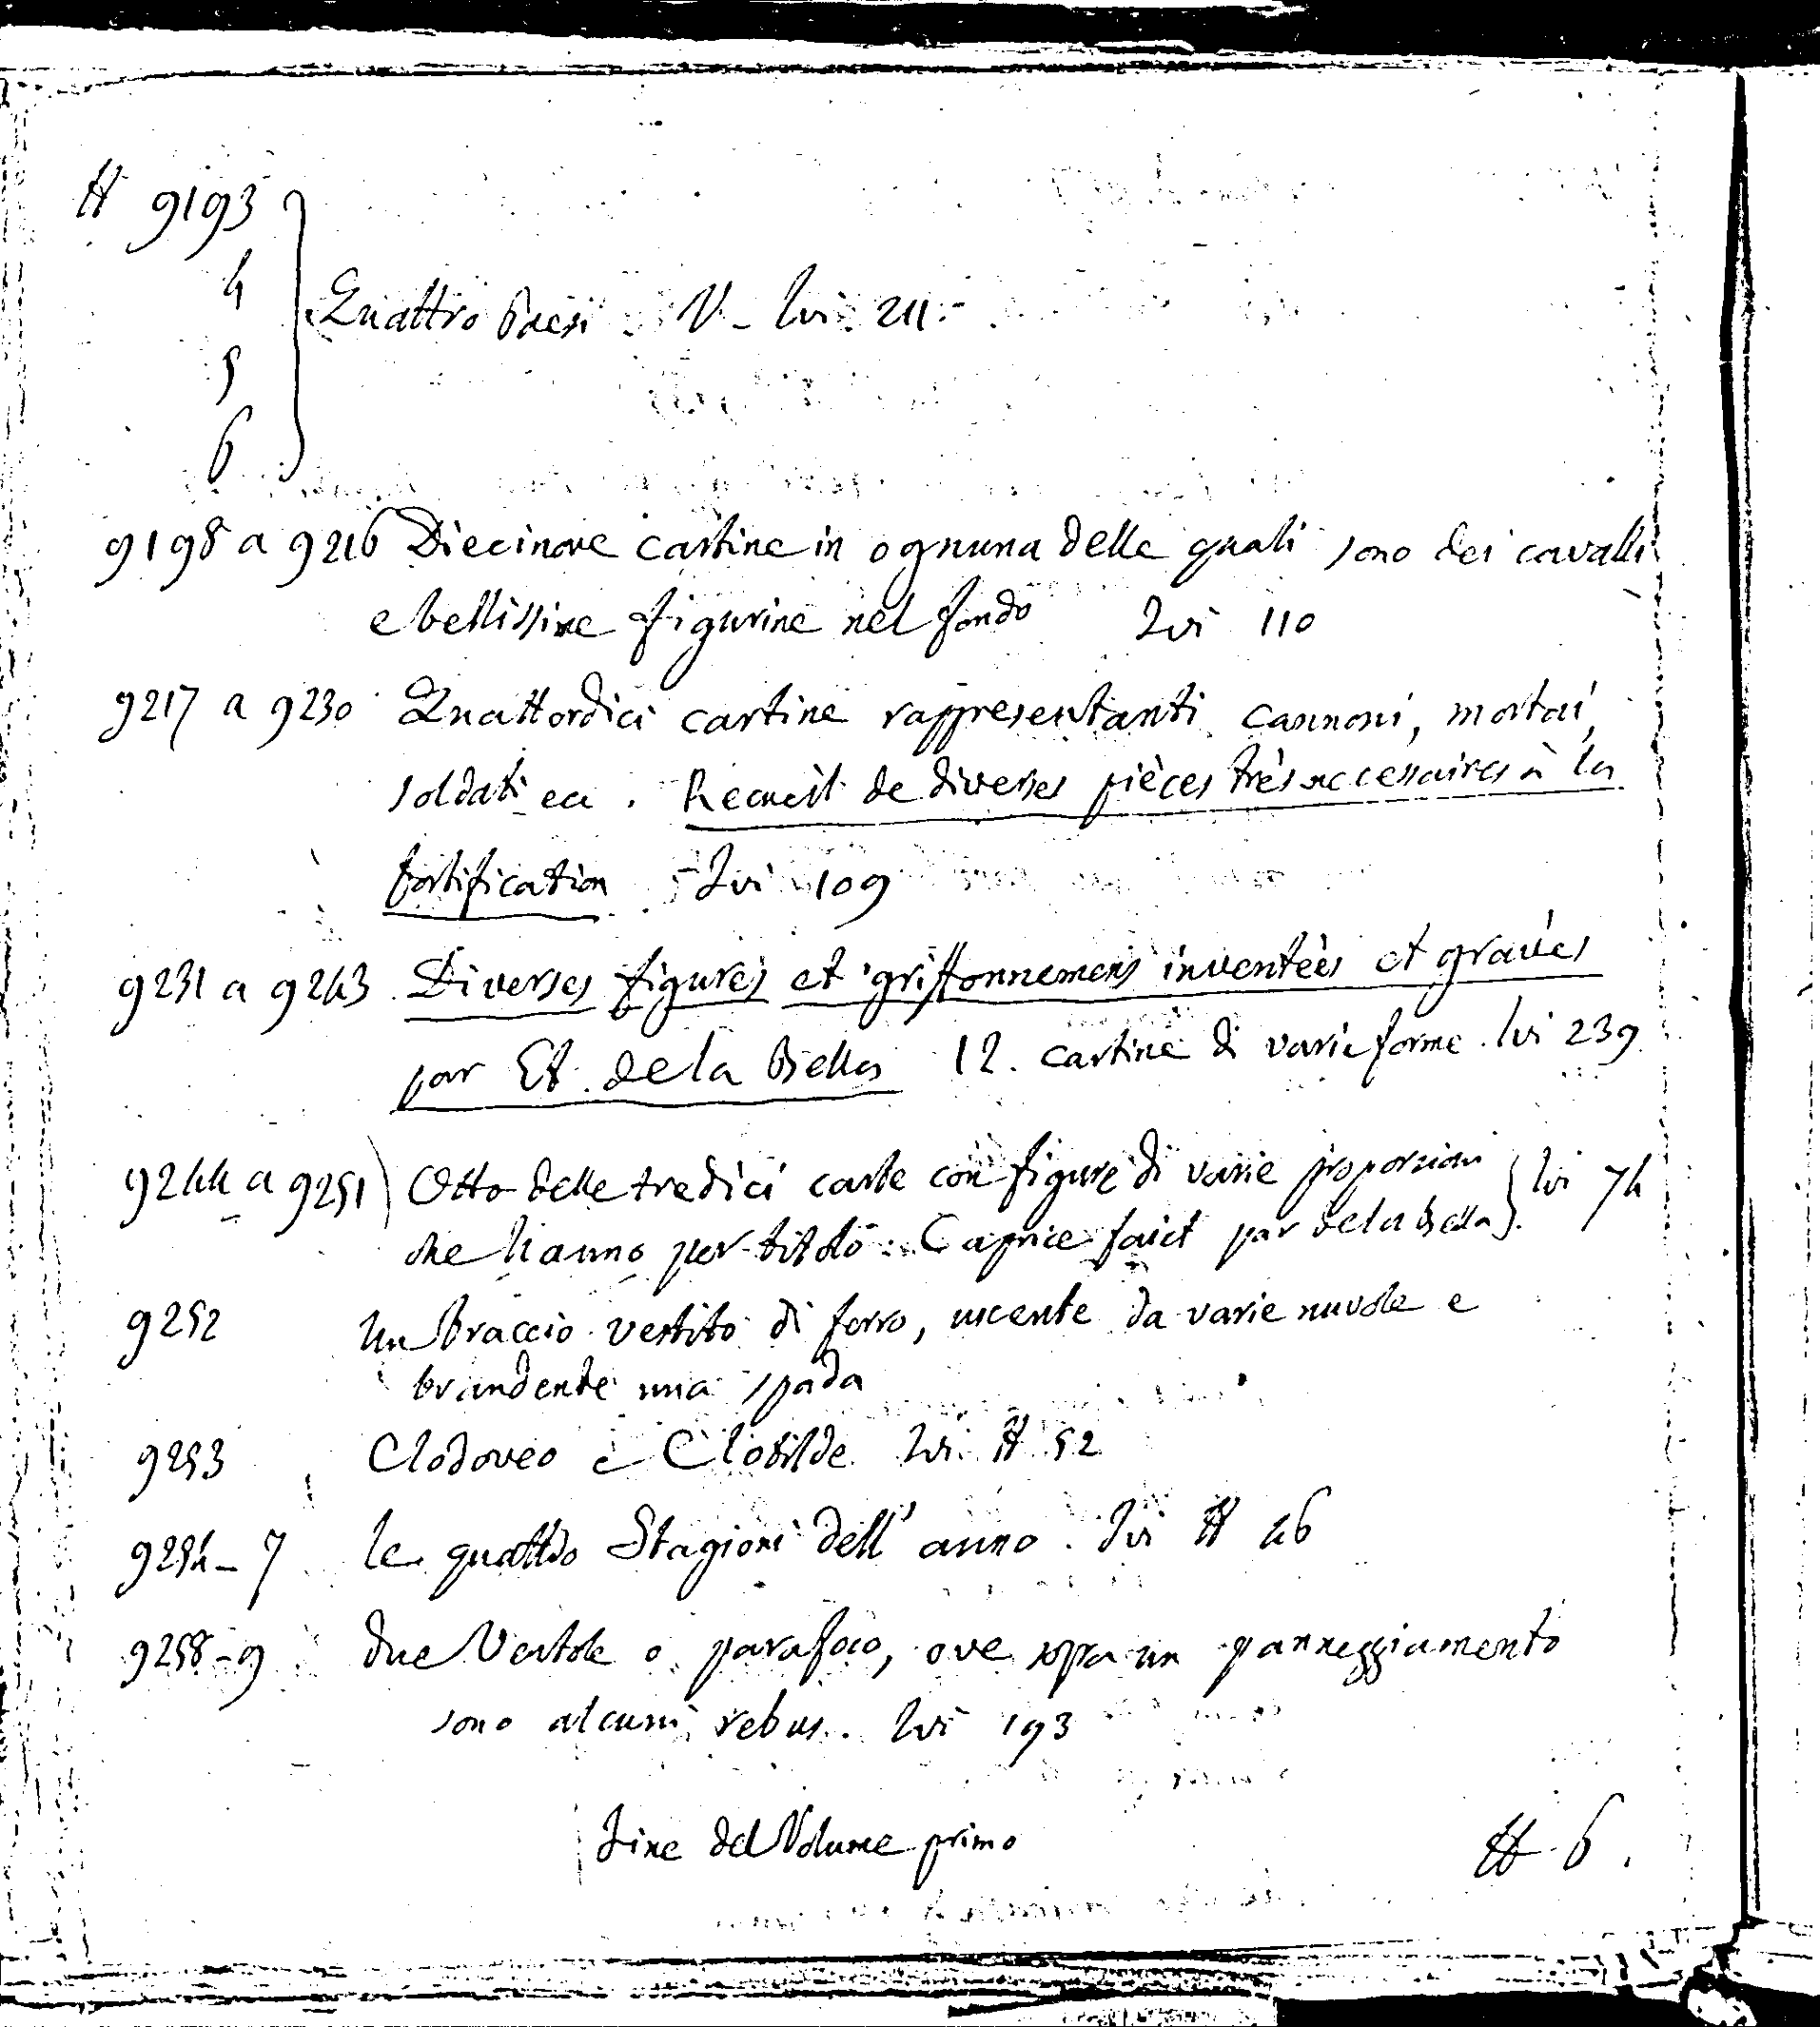 # 9193
4
Quattro Paesi. V. Ivi. 211.
5
6
9198 a 9216 Diecinove cartine in ognuna delle quali sono dei cavalli
e bellissime figurine nel fondo Ivi 110
9217 a 9230 Quattordici cartine rappresentanti cannoni, mortai,
soldati ec. Recueil de diverses pièces très necessaires à la
fortification Ivi 109
9231 a 9243 Diverses figures et griffonnemens inventées et gravés
par Et. de la Bella 12. cartine di varie forme. Ivi 239
9244 a 9251) Otto delle tredici carte con figure di varie proporzioni
che hanno per titolo: Caprice faict par de la Bella}. Ivi 74
9252 Un braccio vestito di ferro, uscente da varie nuvole e
brandente una spada
9253 Clodoveo e Clotilde Ivi # 52
9254-7 le quattro Stagioni dell'anno. Ivi # 46
9258-9 due Ventole o parafoco, ove sopra un panneggiamento
sono alcuni rebus. Ivi 193
Fine del Volume primo # 6.